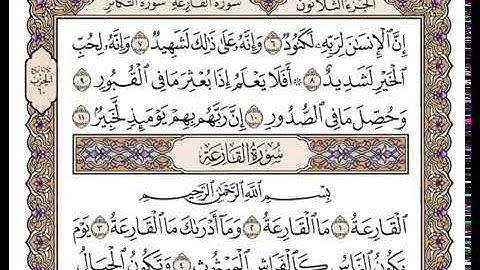 سورة القارعة سورة التكاثر
الجزء الثلاثون
إِنَّ ٱلْإِنسَٰنَ لِرَبِّهِۦ لَكَنُودٌ ٦ وَإِنَّهُۥ عَلَىٰ ذَٰلِكَ لَشَهِيدٌ ٧ وَإِنَّهُۥ لِحُبِّ
ٱلْخَيْرِ لَشَدِيدٌ ٨ ۞ أَفَلَا يَعْلَمُ إِذَا بُعْثِرَ مَا فِى ٱلْقُبُورِ ٩
وَحُصِّلَ مَا فِى ٱلصُّدُورِ ١٠ إِنَّ رَبَّهُم بِهِمْ يَوْمَئِذٍ لَّخَبِيرٌۢ ١١
سُورَةُ القَارِعَةِ
بِسْمِ ٱللَّهِ ٱلرَّحْمَٰنِ ٱلرَّحِيمِ
ٱلْقَارِعَةُ ١ مَا ٱلْقَارِعَةُ ٢ وَمَآ أَدْرَىٰكَ مَا ٱلْقَارِعَةُ ٣ يَوْمَ
يَكُونُ ٱلنَّاسُ كَٱلْفَرَاشِ ٱلْمَبْثُوثِ ٤ وَتَكُونُ ٱلْجِبَالُ
الحزب
٦٠